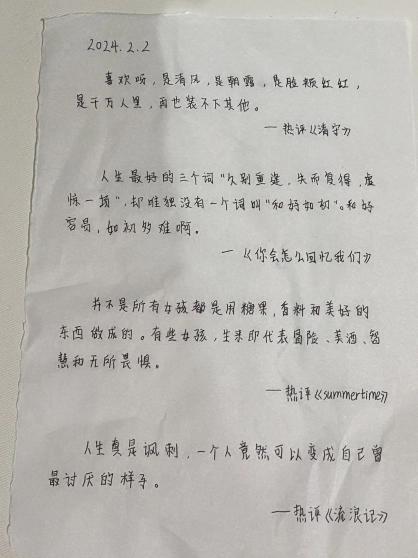 2024.2.2
喜欢呀，是清风，是朝露，是脸颊红红，
是千万人里，再也装不下其他。
—热评《清守》
人生最好的三个词"久别重逢，失而复得，虚
惊一场"，却唯独没有一个词叫"和好如初"。和好
容易，如初多难啊。
—《你会怎么回忆我们》
并不是所有女孩都是用糖果，香料和美好的
东西做成的。有些女孩，生来即代表冒险、美酒、智
慧和无所畏惧。
—热评《summertime》
人生真是讽刺，一个人竟然可以变成自己曾
最讨厌的样子。
—热评《流浪记》